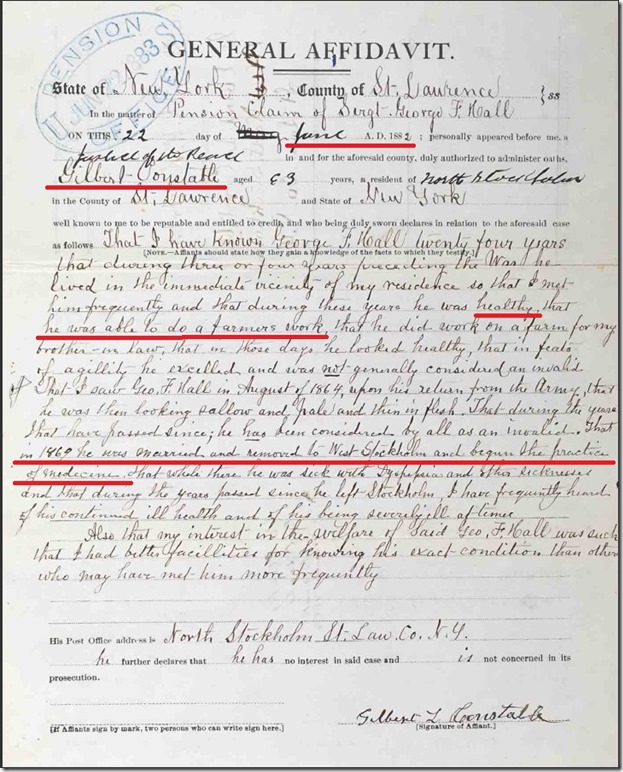 PENSION OFFICE
JUN 1883
GENERAL AFFIDAVIT.
State of New York, County of St. Lawrence } ss
In the matter of Pension Claim of Sergt. George F. Hall
ON THIS 22 day of May June A. D. 1882; personally appeared before me, a
Justice of the Peace in and for the aforesaid county, duly authorized to administer oaths,
Gilbert Constable aged 63 years, a resident of North Stockholm
in the County of St. Lawrence and State of New York
well known to me to be reputable and entitled to credit, and who being duly sworn declares in relation to the aforesaid case
as follows That I have known George F. Hall twenty four years
[NOTE.—Affiants should state how they gain a knowledge of the facts to which they testify.]
that during three or four years preceding the War he
lived in the immediate vicinity of my residence so that I met
him frequently and that during these years he was healthy, that
he was able to do a farmers work, that he did work on a farm for my
brother-in law, that in those days he looked healthy, that in feats
of agillity he excelled, and was not generally considered an invalid.
That I saw Geo. F. Hall in August of 1864, upon his return from the Army, that
he was then looking sallow and pale and thin in flesh. That during the years
that have passed since, he has been considered by all as an invalid. That
in 1869 he was married and removed to West Stockholm and begun the practice
of medicine. That while there he was sick with Dyspepsia and other sicknesses
and that during the years passed since he left Stockholm, I have frequently heard
of his continued ill health and of his being severely ill at times.
Also that my interest in the welfare of said Geo. F. Hall was such
that I had better facillities for knowing his exact condition than others
who may have met him more frequently
His Post Office address is North Stockholm St. Law. Co. N.Y.
he further declares that he has no interest in said case and is not concerned in its
prosecution.
Gilbert L Constable
[If Affiants sign by mark, two persons who can write sign here.]
[Signature of Affiant.]